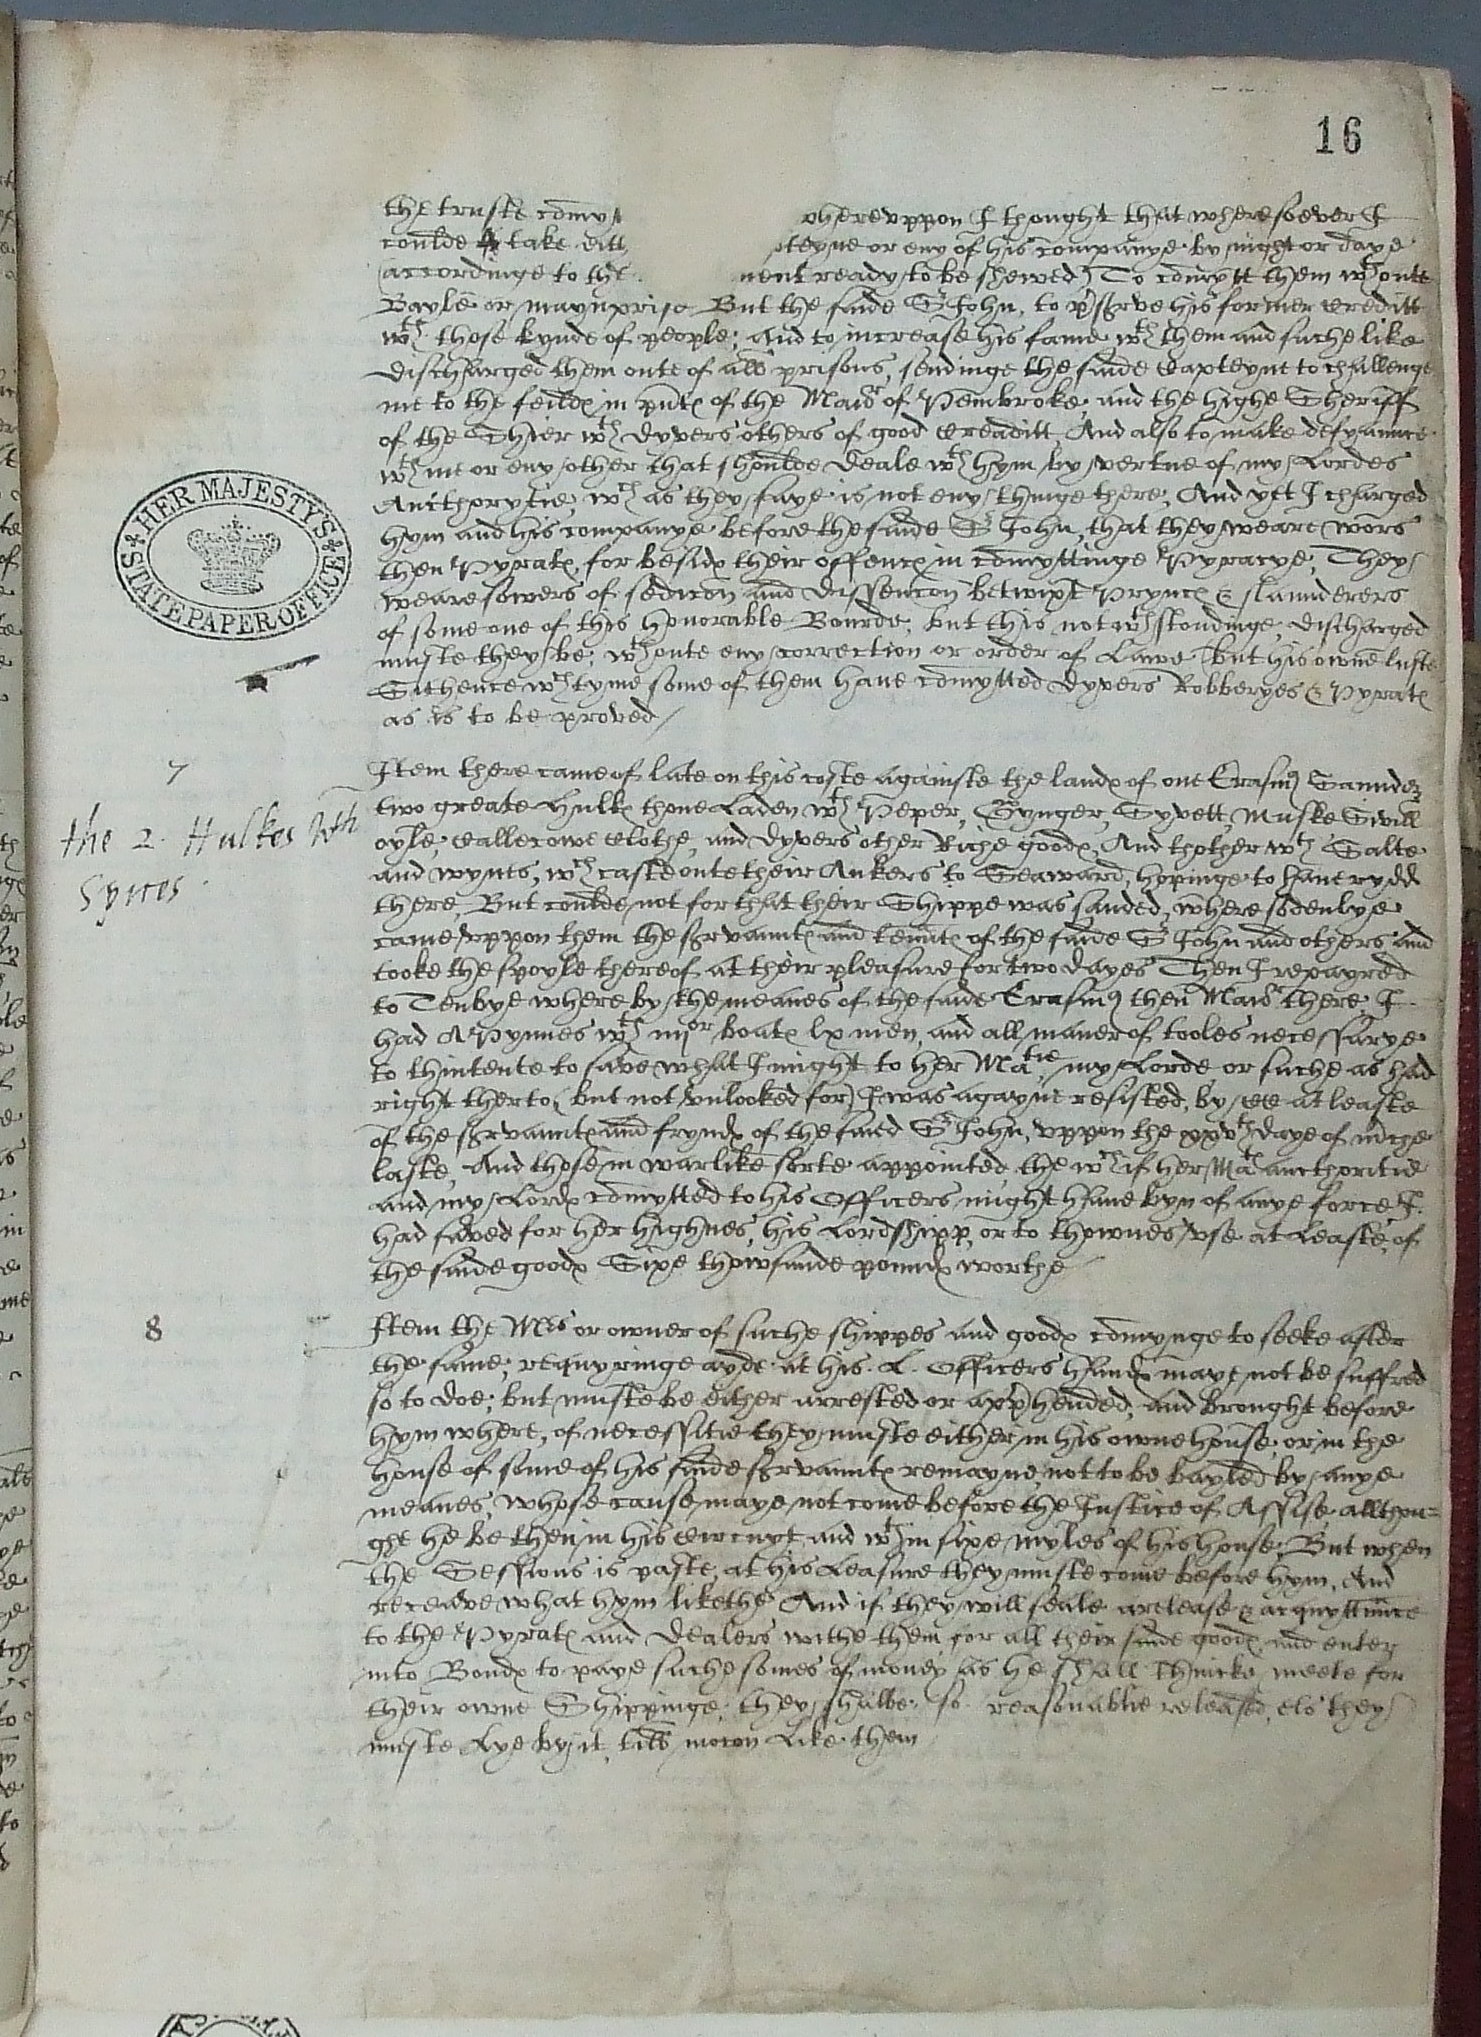 16
the truste comy whereuppon I thought that wheresoever I
coulde take eith pteyne or eny of his companye by night or daye
(accordinge to the ment ready to be shewed) To comytt them wthoute
Bayle or maynprise But the saide Sr John, to pserve his former creditt
wth those kynde of people; And to increase his fame wth them and suche like
discharged them oute of all prisons, sendinge the saide Capteyne to challenge
me to the feilde in pnte of the Maior of Pembroke, and the highe Sheriff
of the Shier wth dyvers others of good creaditt, And also to make defyaunce
wth me or eny other that shoulde deale wth hym by vertue of my Lordes
Aucthorytie, wch as they saye is not eny thinge there, And yet I charged
hym and his companye before the saide Sr John, that they weare wors
then Pyrates, for besides their offences in comyttinge Pyracye, They
weare sowers of sedicon and dissencon betwixt Prynces & slaunderers
of some one of this honorable Bourde, but this notwthstondinge, discharged
muste they be, wthoute eny correction or order of Lawe but his owne luste
Sithence wch tyme some of them have comytted dyvers Robberyes & Pyrates
as is to be proved /
7
the 2. Hulkes wth
Spices.
Item there came of late on this coste againste the landes of one Erasmus Saundez
two greate Hulkes thone Laden wth Peper, Gynger, Syvett, Muske Sivill
oyle, Callecowe Clothe, and dyvers other Riche goodes, And thother wth Salte
and wynes, wch caste oute their Ankers to Seaward, hopinge to have rydd
there, But coulde not for that their Shippe was sanded, where sodenlye
came uppon them the servauntes and tenntes of the saide Sr John and others and
tooke the spoyle thereof at their pleasure for two dayes Then I repayred
to Tenbye where by the meanes of the saide Erasmus then Maior there, I
had A Pynnes wth iijor boates lx men, and all maner of tooles necessarye
to thintente to save what I might to her Matie, my Lorde or suche as had
right therto, (but not unlooked for) I was agayne resisted, by CC at leaste
of the servauntes and fryndes of the saied Sr John, uppon the xxvth daye of
laste, And those in warlike sorte appointed, the wch if her Mats aucthoritie
and my Lordes comytted to his Officers might have byn of anye force I
had saved for her highnes, his Lordshipp, or to thownes use at Leaste, of
the saide goodes Sixe thowsande poundes worthe
8
Item the Mrs or owner of suche shippes and goodes comynge to seeke after
the same, requyringe ayde at his L. Officers handes maye not be suffred
so to doe; but muste be either arrested or apphended, and brought before
hym where, of necessitie they muste either in his owne house, or in the
house of some of his saide servauntes remayne, not to be bayled by anye
meanes, whose cause maye not come before the Justice of Assise allthou=
ghe he be then in his circuyt and wthin sixe myles of his house; But when
the Sessions is paste, at his Leasure they muste come before hym, And
receave what hym likethe And if they will seale a release & acquyttance
to the Pyrates and dealers withe them for all their saide goodes, and enter
into Bondes to paye suche somes of money as he shall thincke meete for
their owne Shippinge, they shalbe so reasonablie released, els they
muste Lye by it, till moton Like them
HER MAJESTY'S
STATE PAPER OFFICE